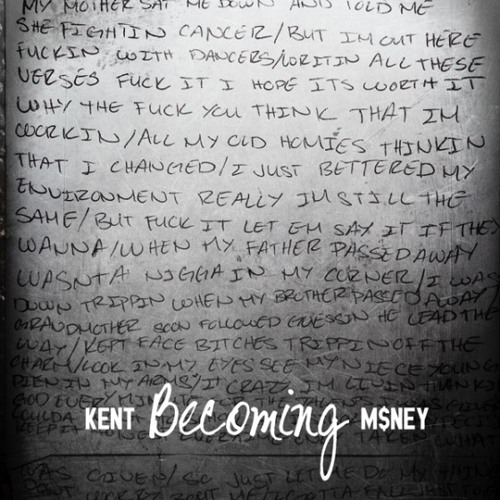 MY MOTHER SAT ME DOWN AND TOLD ME
SHE FIGHTIN CANCER/BUT IM OUT HERE
FUCKIN WITH DANCERS/WRITIN ALL THESE
VERSES FUCK IT I HOPE ITS WORTH IT
WHY THE FUCK YOU THINK THAT IM
WORKIN/ALL MY OLD HOMIES THINKIN
THAT I CHANGED/I JUST BETTERED MY
ENVIRONMENT REALLY IM STILL THE
SAME/BUT FUCK IT LET EM SAY IT IF THEY
WANNA/WHEN MY FATHER PASSED AWAY
WASNT A NIGGA IN MY CORNER/I WAS
DOWN TRIPPIN WHEN MY BROTHER PASSED AWAY
GRANDMOTHER SOON FOLLOWED GUESSIN HE LEAD THE
WAY/KEPT FACE BITCHES TRIPPIN OFF THE
CHARM/LOOK IN MY EYES SEE MY NIECE YOUNG
DIEN IN MY ARMS/IT CRAZY IM LIVIN THANKIN
GOD EVERY
KENT Becoming M$NEY
TAKEN WHAT
WAS GIVEN/SO JUST LET ME DO MY